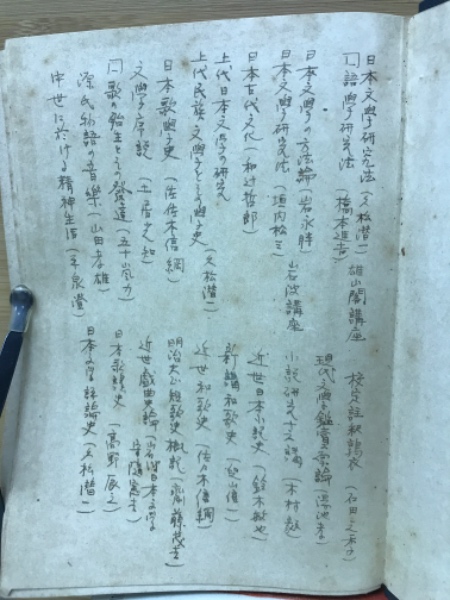 日本文學研究法(久松潜一)雄山閣講座
国語學研究法(橋本進吉)
日本文學の方法論(岩永胖)
日本文學研究法(垣内松三)岩波講座
日本古代文化(和辻哲郎)
上代日本文學の研究
上代民族文學とその學史(久松潜一)
日本歌學史(佐佐木信綱)
文學序説(土居光知)
国歌の胎生とその發達(五十嵐力)
源氏物語の音樂(山田孝雄)
中世に於ける精神生活(平泉澄)
校定註釈鶉衣(石田元季)
現代文學鑑賞
小説研究十六講(木村毅)
近世日本小説史(鈴木敏也)
新講和歌史
近世和歌史(佐々木信綱)
明治大正短歌史概説(斎藤茂吉)
近世戯曲史
日本歌謡史(高野辰之)
日本文学評論史(久松潜一)